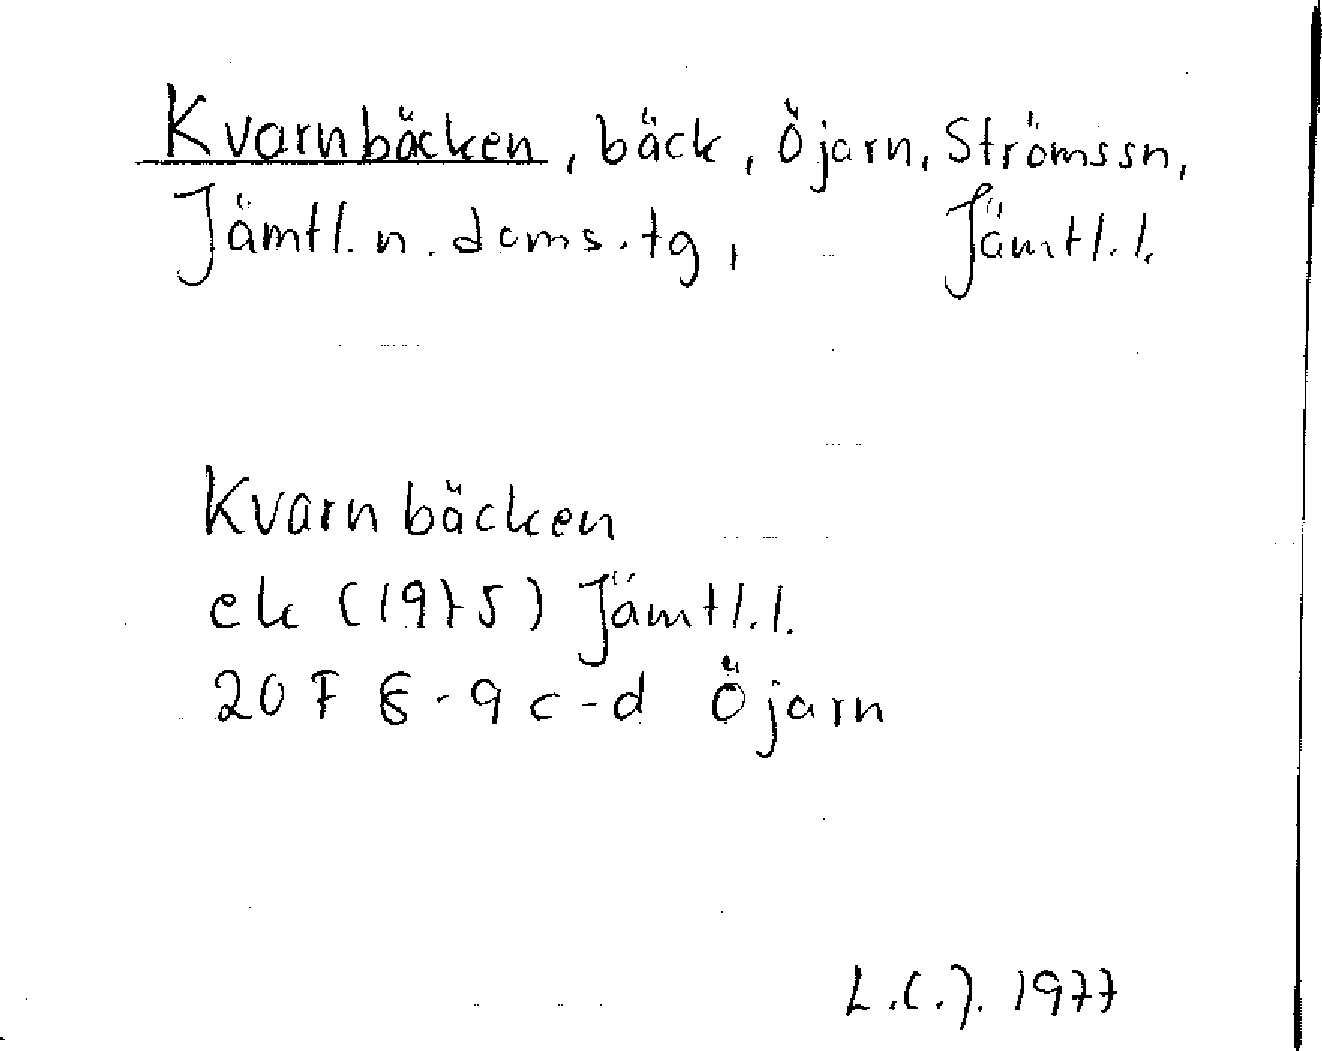 Kvarnbäcken, bäck, Öjarn, Strömssn,
Jämtl. n. doms. tg, Jämtl. l.
Kvarnbäcken
ek (1975) Jämtl. l.
20 F 8-9 c-d Öjarn
L.C.J. 1977